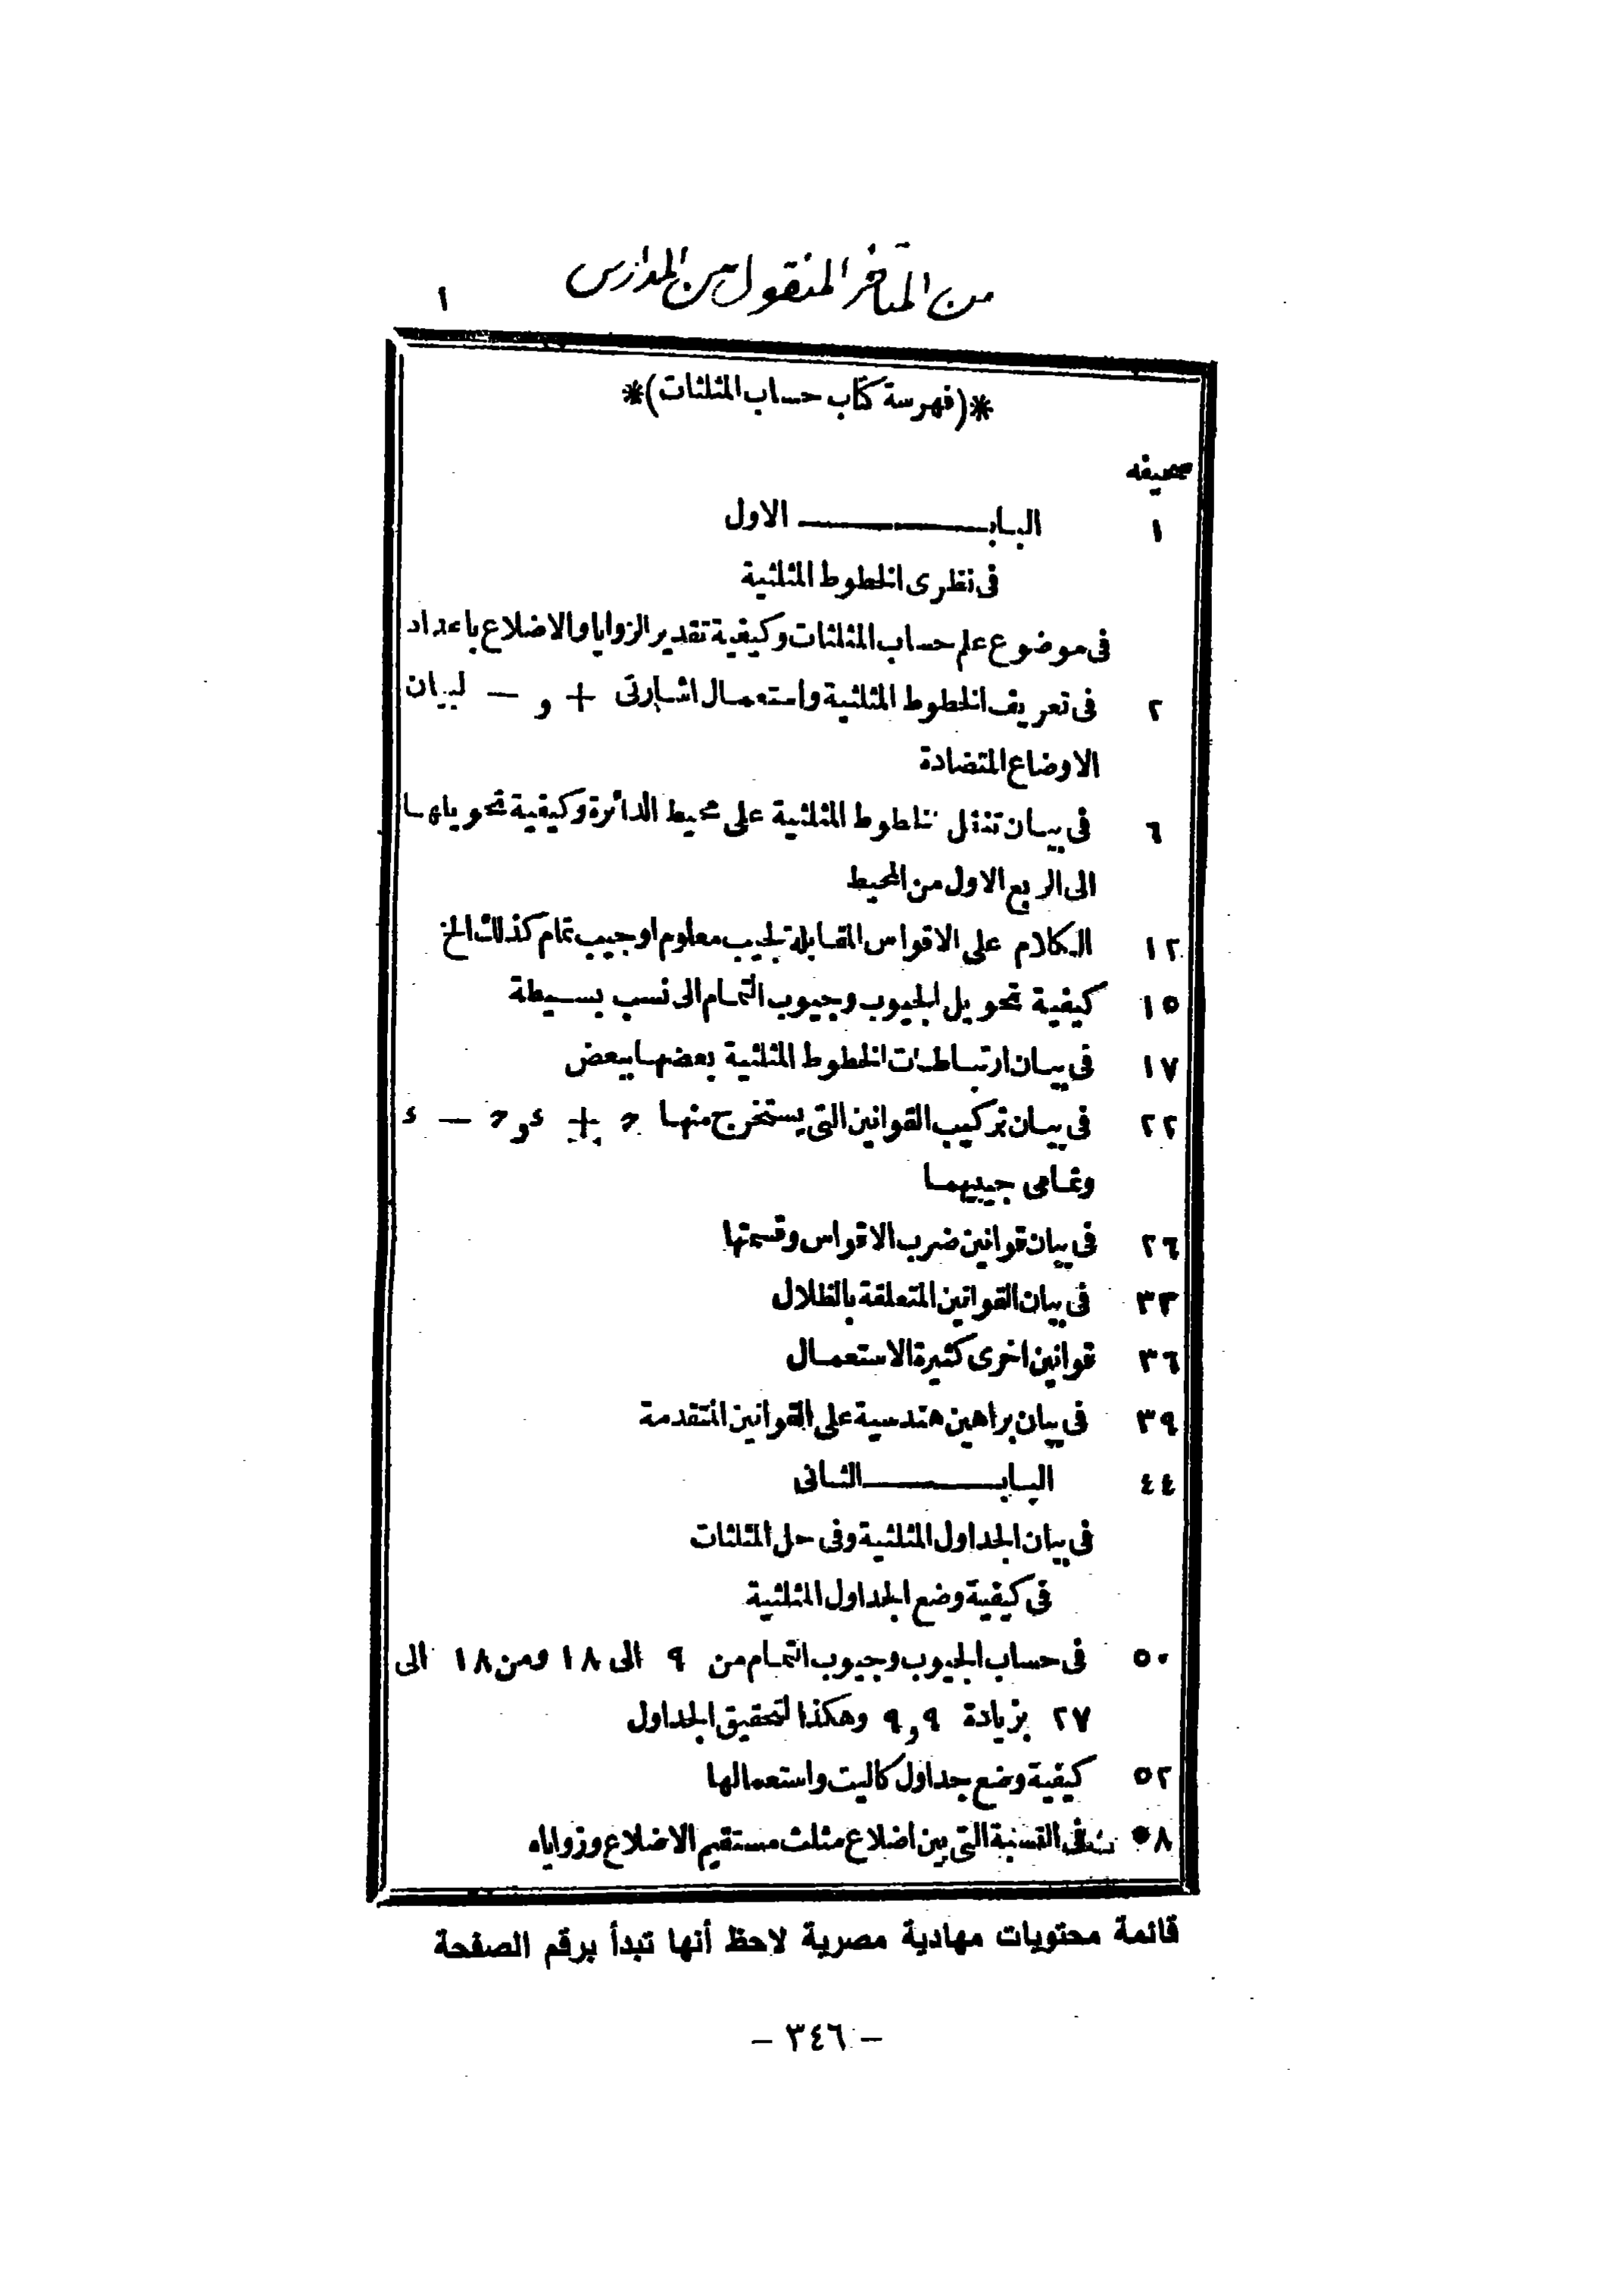 من المتأخر المنقول من المدارس
١
*(فهرسة كتاب حساب المثلثات)*
صحيفه
١ البـاب الاول
فى نظرى الخطوط المثلثية
فى موضوع علم حساب المثلثات وكيفية تقدير الزوايا والاضلاع باعداد
٢ فى تعريف الخطوط المثلثية واستعمـال اشارتى + و — لبيان
الاوضاع المتضادة
٦ فى بيـان تنقل الخطوط المثلثية على محيط الدائرة وكيفية تحويلهـا
الى الربع الاول من المحيط
١٢ الـكلام على الاقواس المقـابلة لجيب معلوم او جيب تمام كذلك الخ
١٥ كيفية تحويل الجيوب وجيوب التمـام الى نسب بسـيطة
١٧ فى بيـان ارتبـاطـات الخطوط المثلثية بعضهـا ببعض
٢٢ فى بيـان تركيب القوانين التى يستخرج منهـا ح + ء و ح — ء
وتمـامى جيبيهمـا
٢٦ فى بيان قوانين ضرب الاقواس وقسمتها
٣٣ فى بيان القوانين المتعلقة بالظلال
٣٦ قوانين اخرى كثيرة الاستعمـال
٣٩ فى بيان براهين هندسية على القوانين المتقدمة
٤٤ البـاب الثـانى
فى بيان الجداول المثلثية وفى حل المثلثات
فى كيفية وضع الجداول المثلثية
٥٠ فى حساب الجيوب وجيوب التمـام من ٩ الى ١٨ ومن ١٨ الى
٢٧ بزيادة ٩ و ٩ وهكذا لتحقيق الجداول
٥٢ كيفية وضع جداول كاليت واستعمالها
٥٨ فى النسبة التى بين اضلاع مثلث مستقيم الاضلاع وزواياه
قائمة محتويات مهادية مصرية لاحظ أنها تبدأ برقم الصفحة
– ٣٤٦ –